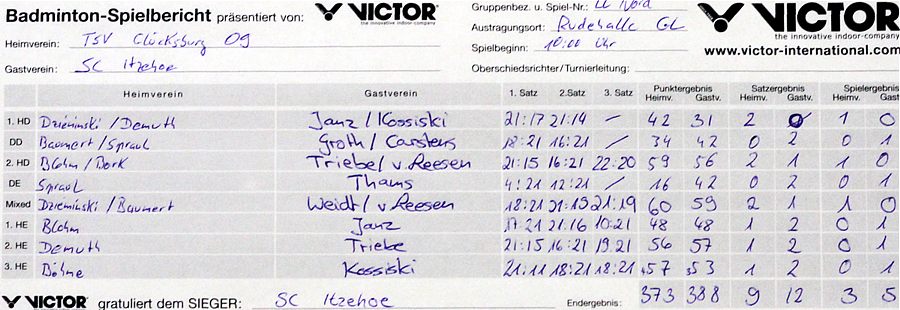 Badminton-Spielbericht präsentiert von: VICTOR the innovative indoor-company Gruppenbez. u. Spiel-Nr.: LL Nord VICTOR the innovative indoor-company
Heimverein: TSV Glücksburg 09 Austragungsort: Rudehalle GL
Spielbeginn: 10:00 Uhr www.victor-international.com
Gastverein: SC Itzehoe Oberschiedsrichter/Turnierleitung:
Heimverein Gastverein 1. Satz 2.Satz 3. Satz Punktergebnis Heimv. Gastv. Satzergebnis Heimv. Gastv. Spielergebnis Heimv. Gastv.
1. HD Dzieminski/Demuth Janz/Kossiski 21:17 21:14 / 42 31 2 0 1 0
DD Baumert/Spraul Groth/Carstens 18:21 16:21 / 34 42 0 2 0 1
2. HD Blohm/Bork Triebel/v.Reesen 21:15 16:21 22:20 59 56 2 1 1 0
DE Spraul Thams 4:21 12:21 / 16 42 0 2 0 1
Mixed Dzieminski/Baumert Weidt/v.Reesen 18:21 21:19 21:19 60 59 2 1 1 0
1. HE Blohm Janz 17:21 21:16 10:21 48 48 1 2 0 1
2. HE Demuth Triebe 21:15 16:21 19:21 56 57 1 2 0 1
3. HE Böhme Kossiski 21:11 18:21 18:21 57 53 1 2 0 1
VICTOR gratuliert dem SIEGER: SC Itzehoe Endergebnis: 373 388 9 12 3 5